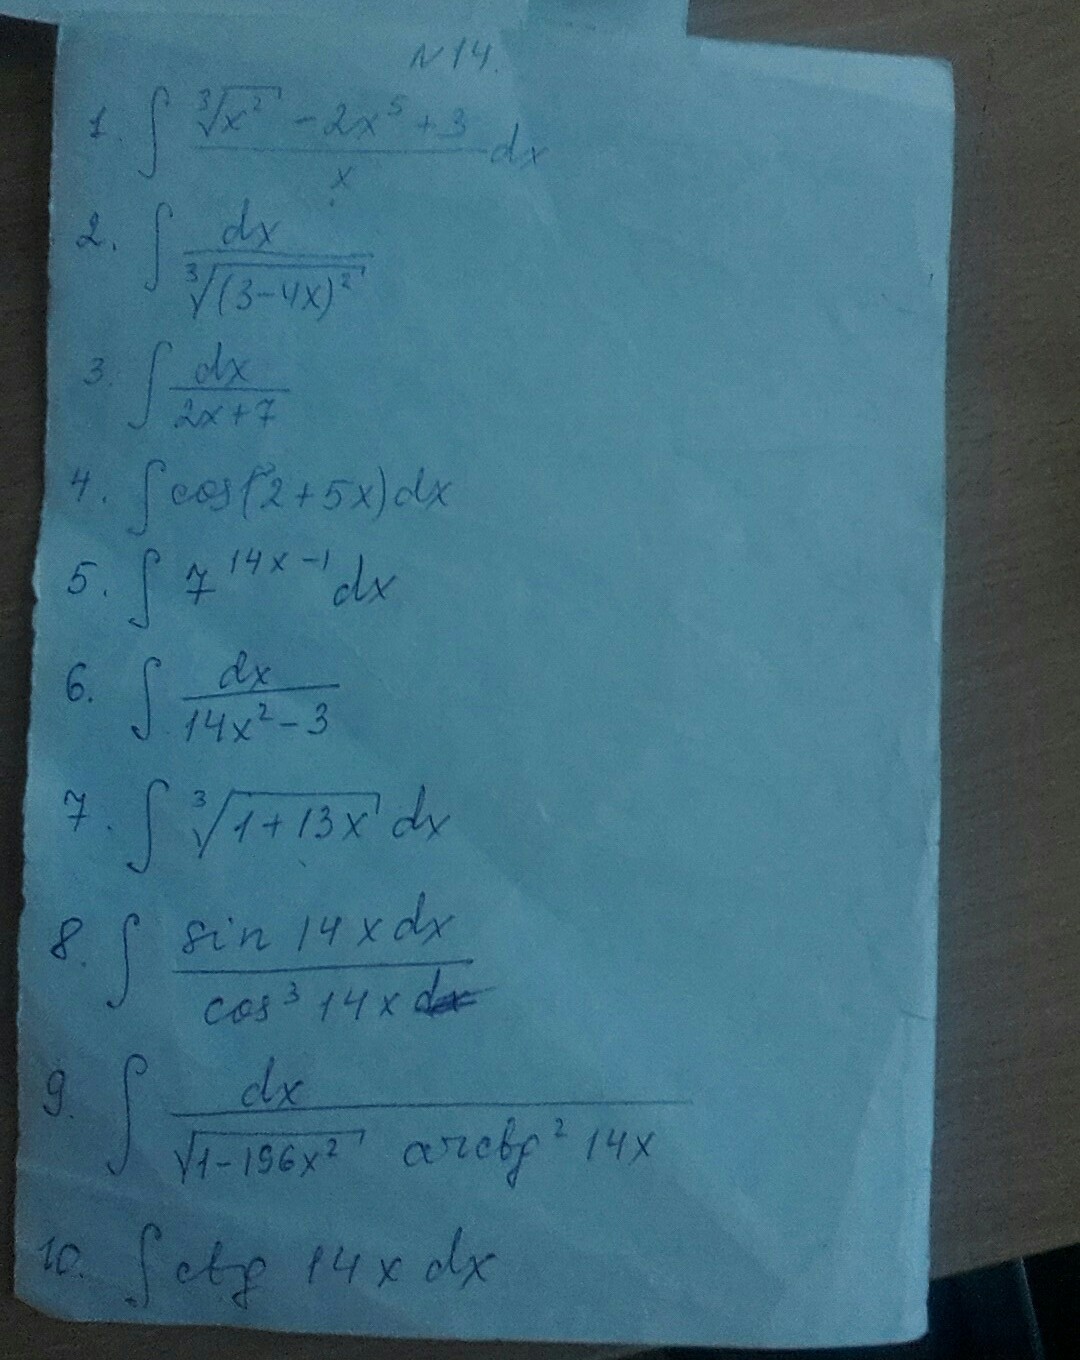 N14.
1. ∫ (∛(x²) - 2x⁵ + 3)/x dx
2. ∫ dx/∛((3-4x)²)
3. ∫ dx/(2x+7)
4. ∫ cos(2+5x)dx
5. ∫ 7^(14x-1) dx
6. ∫ dx/(14x²-3)
7. ∫ ∛(1+13x) dx
8. ∫ sin 14x dx / cos³ 14x
9. ∫ dx / (√(1-196x²) arcctg² 14x)
10. ∫ ctg 14x dx